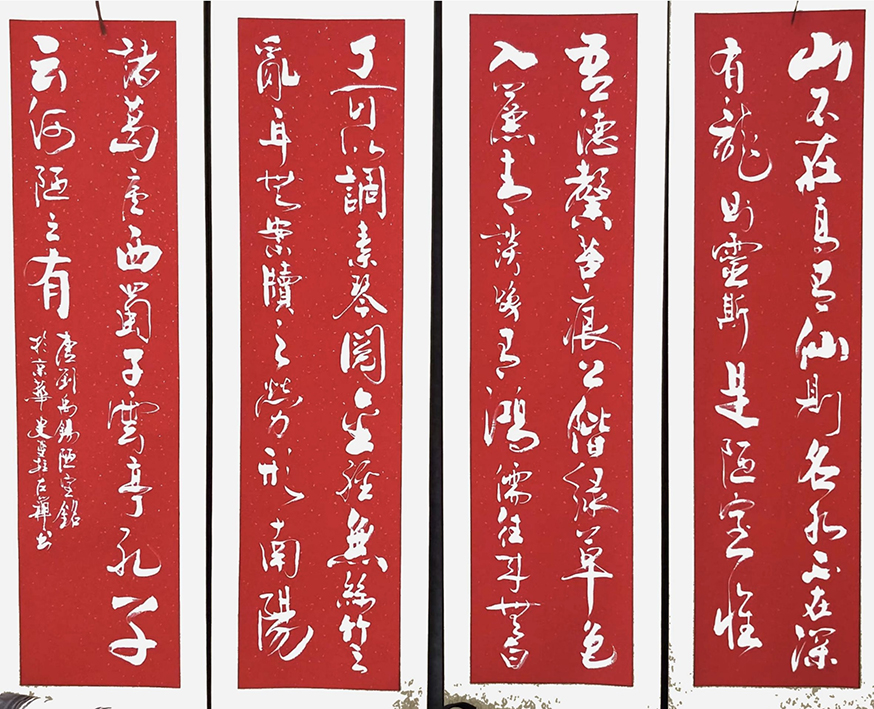 山不在高有仙則名水不在深
有龍則靈斯是陋室惟
吾德馨苔痕上階緑草色
入簾青談笑有鴻儒往来無白
丁可以調素琴閲金經無絲竹之
亂耳無案牘之勞形南陽
諸葛廬西蜀子雲亭孔子
云何陋之有
唐劉禹錫陋室銘
於京華